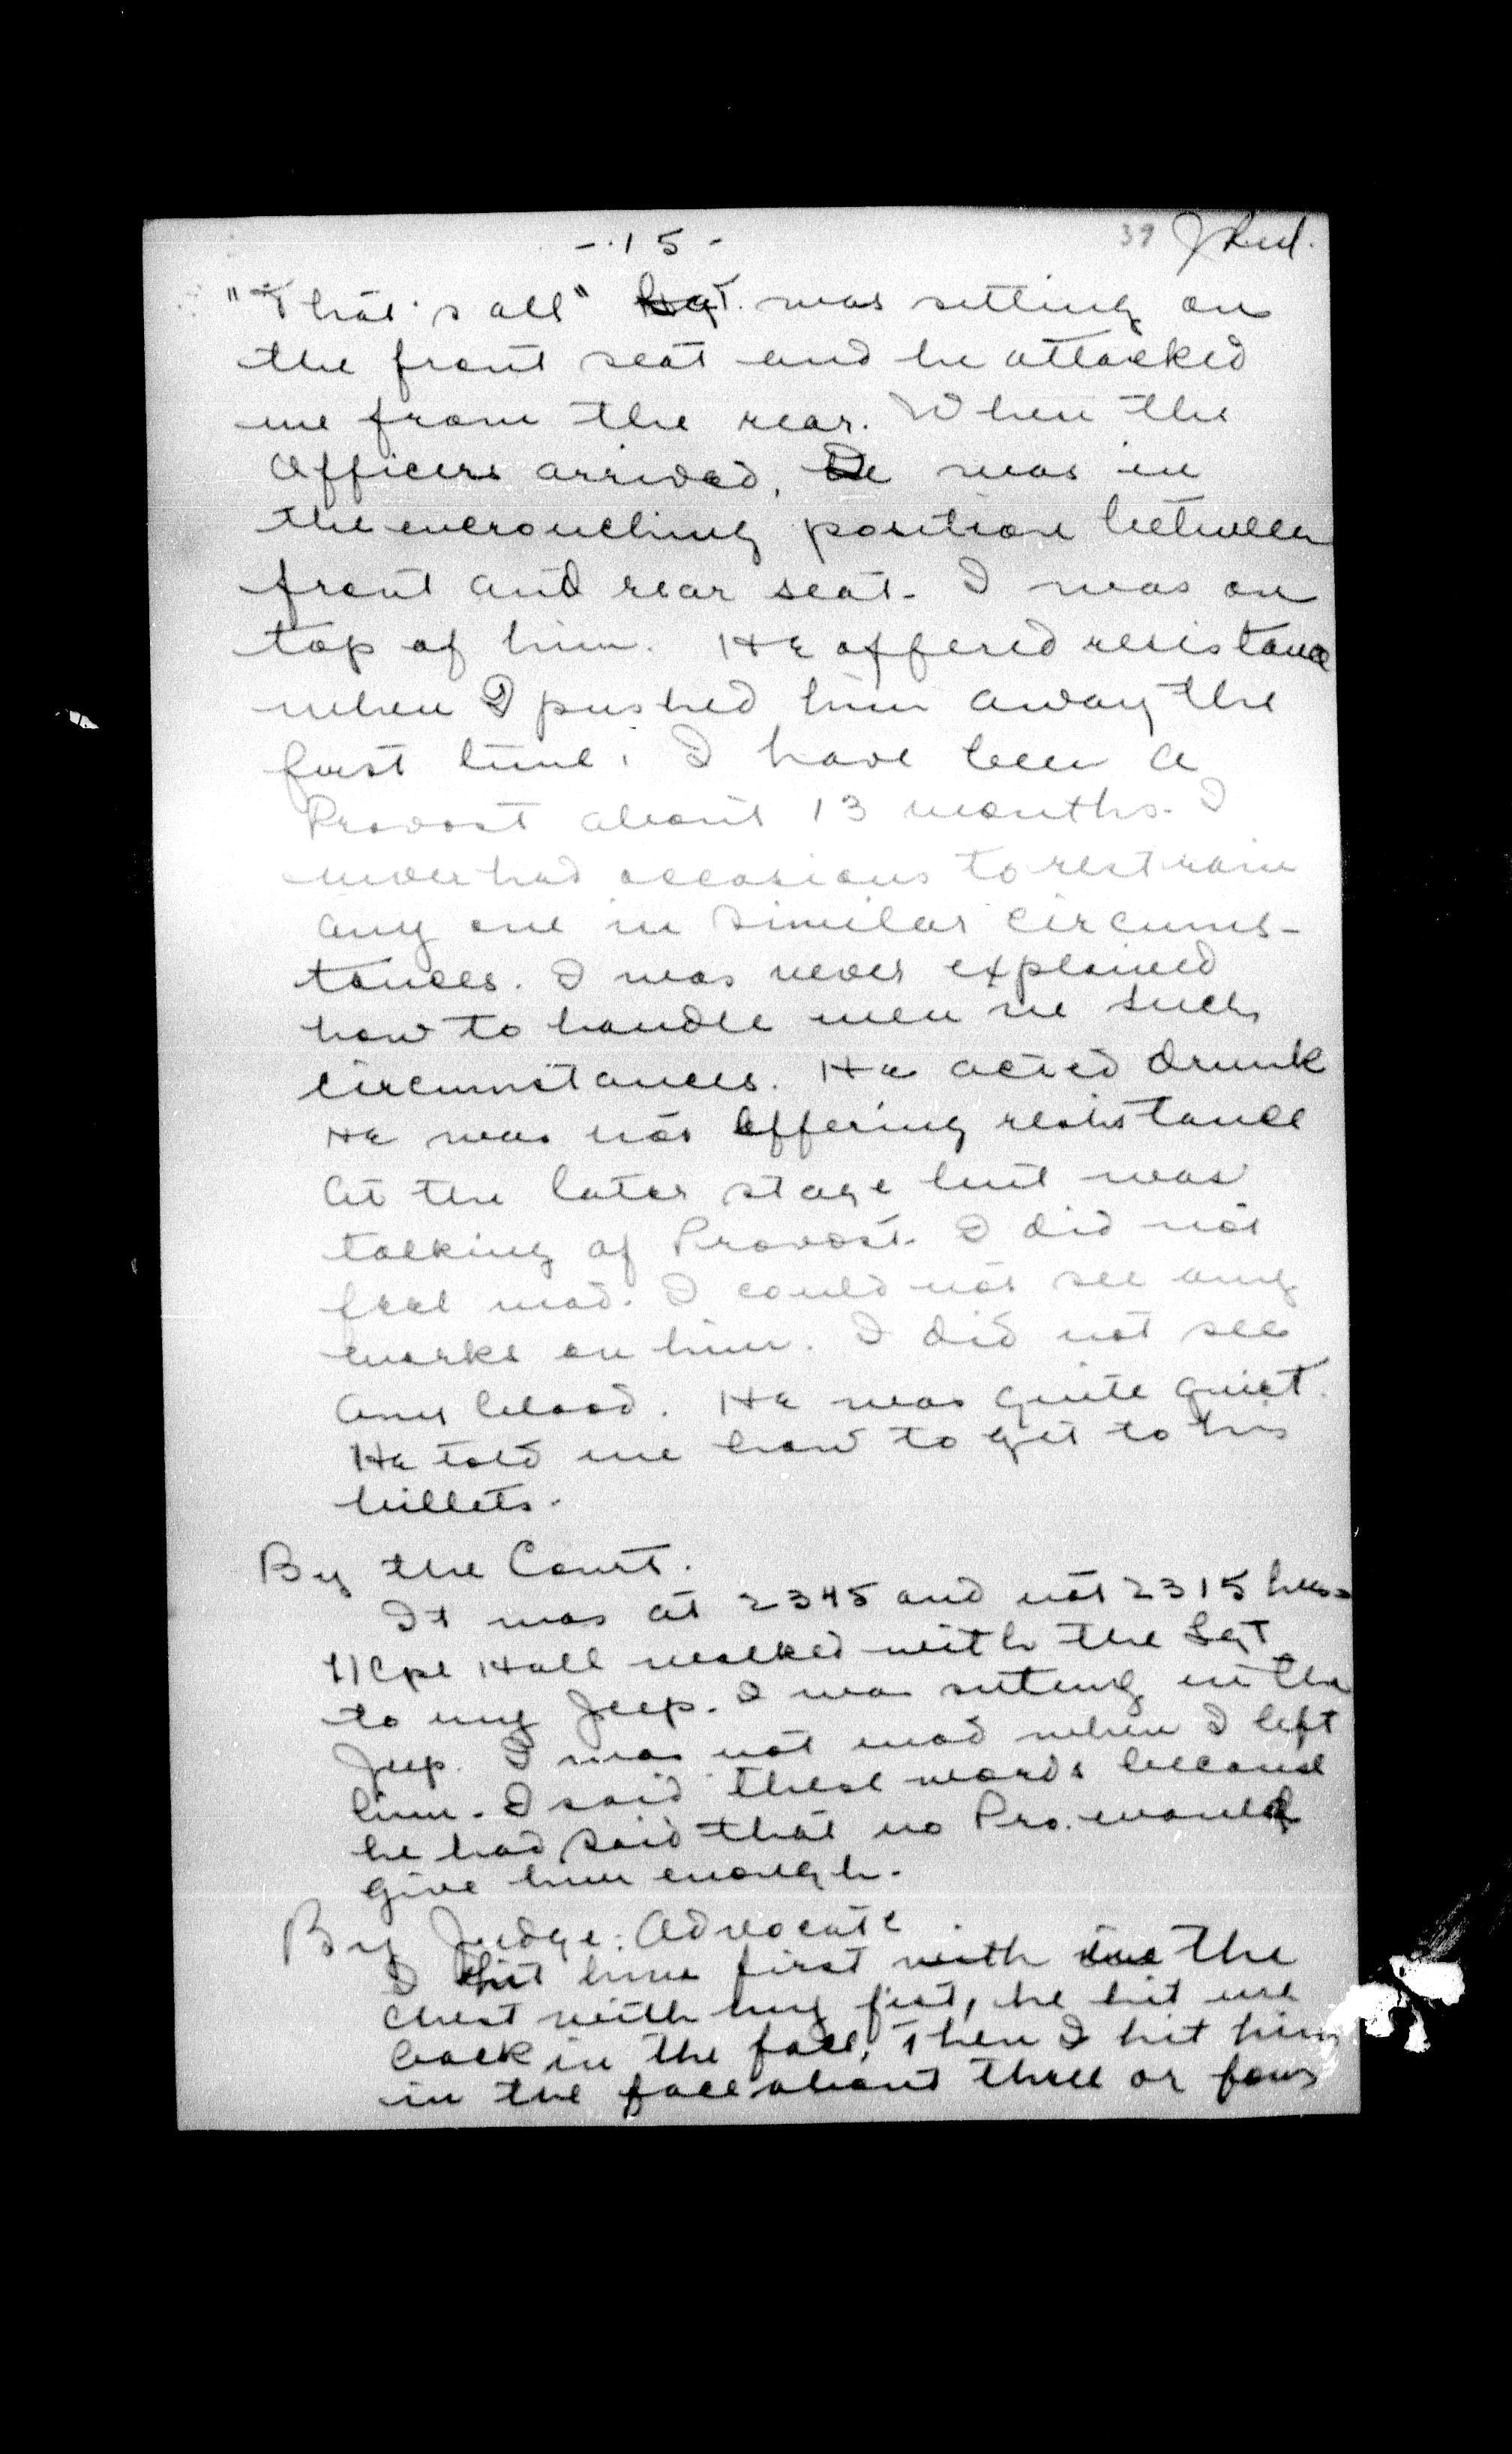 - 15 -
39
"That's all" Sgt. was sitting on
the front seat and he attacked
me from the rear. When the
Officers arrived, He was in
the encrouching position between
front and rear seat. I was on
top of him. He offered resistance
when I pushed him away the
first time. I have been a
Provost about 13 months. I
never had occasions to restrain
any one in similar circums-
tances. I was never explained
how to handle men in such
circumstances. He acted drunk
He was not offering resistance
at the later stage but was
talking of Provost. I did not
feel mad. I could not see any
marks on him. I did not see
any blood. He was quite quiet.
He told me how to get to his
billets.
By the Court.
It was at 2345 and not 2315 hrs.
L/Cpl Hall walked with the Sgt
to my Jeep. I was siting in the
Jeep. I was not mad when I left
him. I said these words because
he had said that no Pro. would
give him enough.
By Judge. Advocate.
I hit him first with the
chest with my fist, he hit me
back in the face, Then I hit him
in the face about three or four